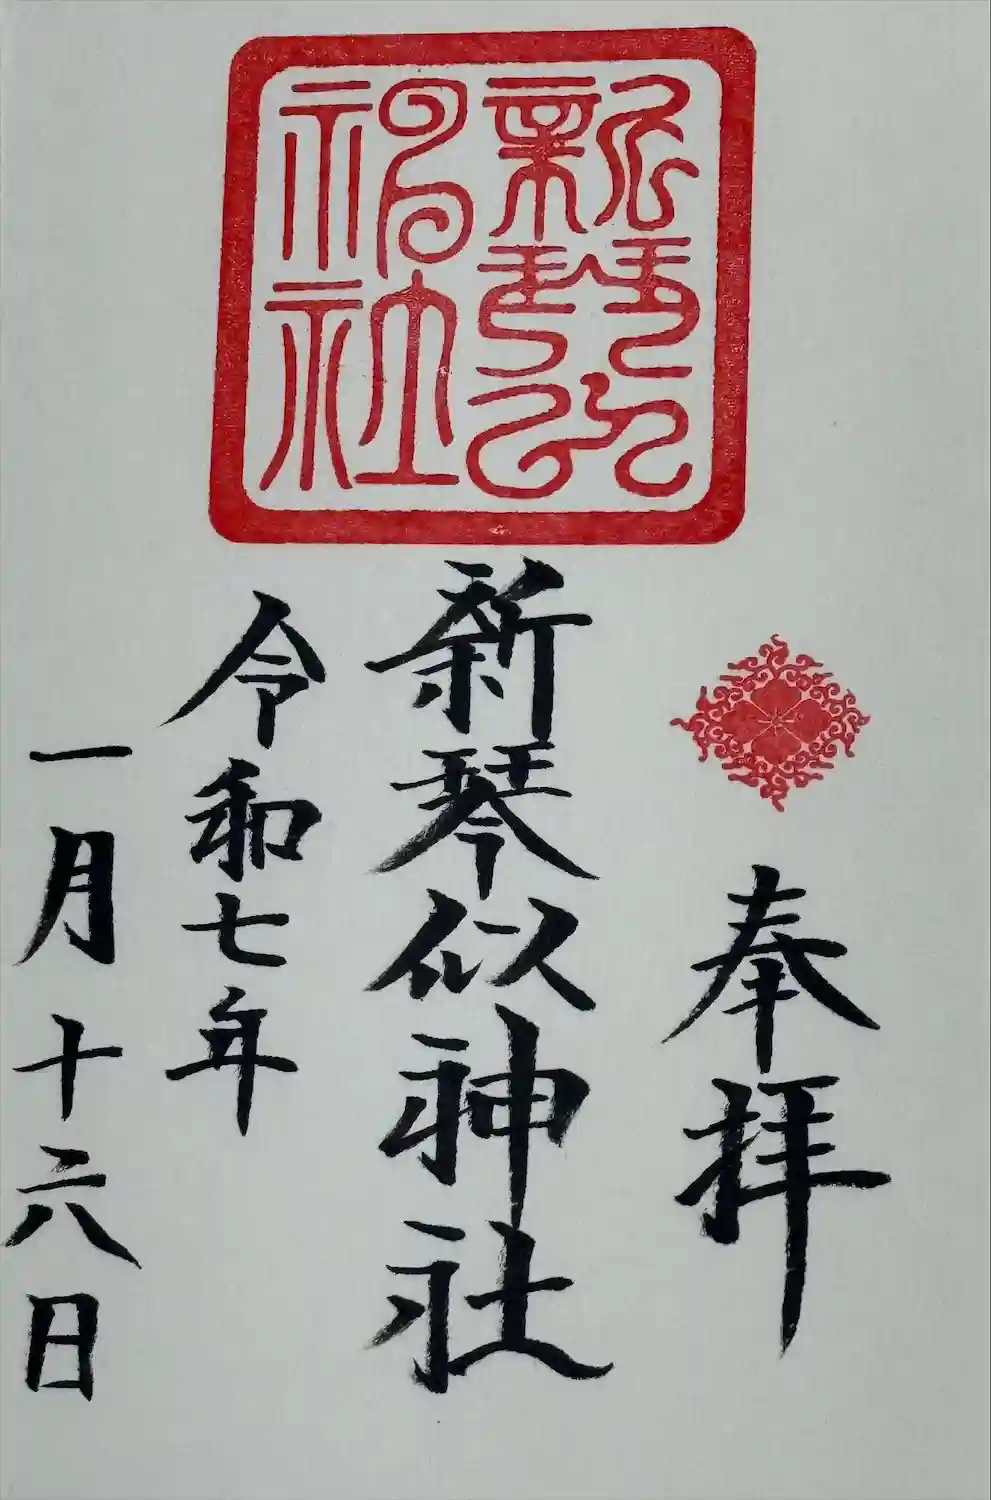 新琴似神社
奉拝
新琴似神社
令和七年
一月十六日